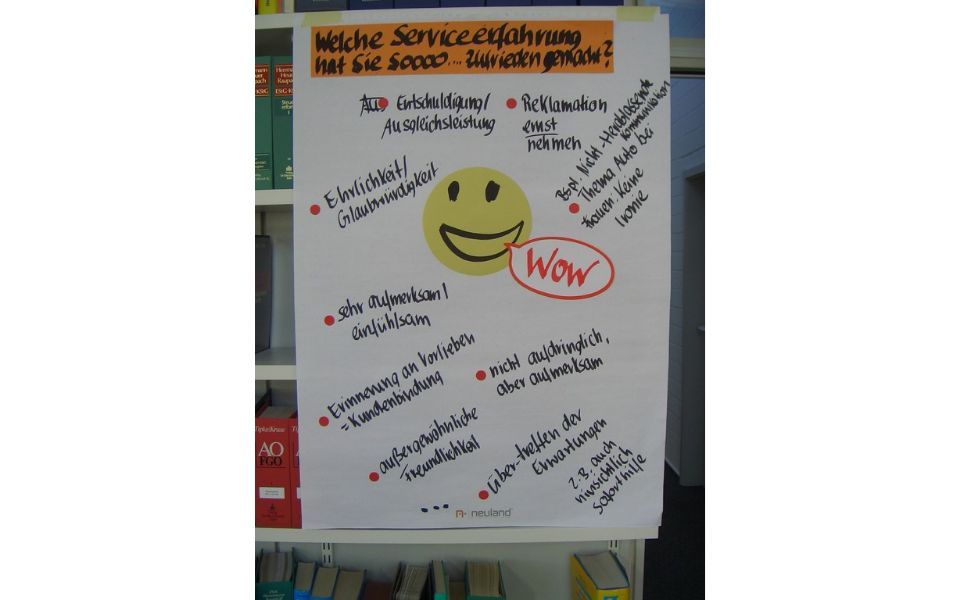 Welche Serviceerfahrung
hat Sie soooo... zufrieden gemacht?
Aus Entschuldigung/
Ausgleichsleistung
Reklamation
ernst
nehmen
Bspl. Nicht-Herablassende
Kommunikation
Thema Auto bei
Frauen. Keine
Ironie
Ehrlichkeit/
Glaubwürdigkeit
WOW
sehr aufmerksam/
einfühlsam
nicht aufdringlich,
aber aufmerksam
Erinnerung an Vorlieben
= Kundenbindung
außergewöhnliche
Freundlichkeit
Über-treffen der
Erwartungen
z.B. auch
hinsichtlich
Soforthilfe
...
neuland
Tipke/Kruse
AO
FGO